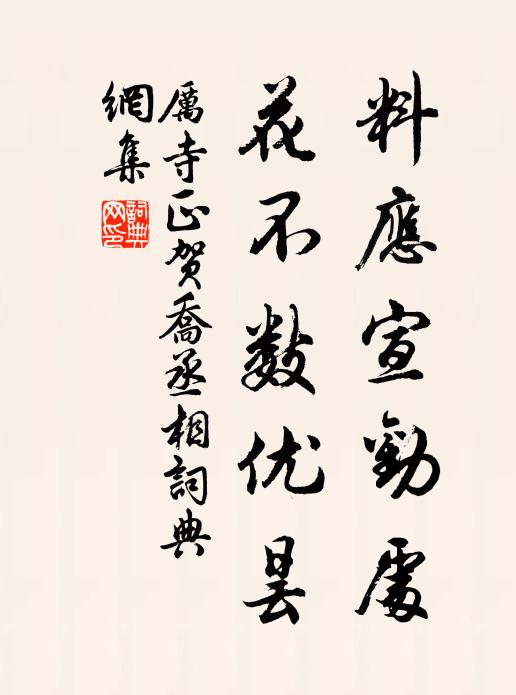 料應宣勸處
花不數优昙
厲寺正贺喬丞相詞典
網集
詞典网印